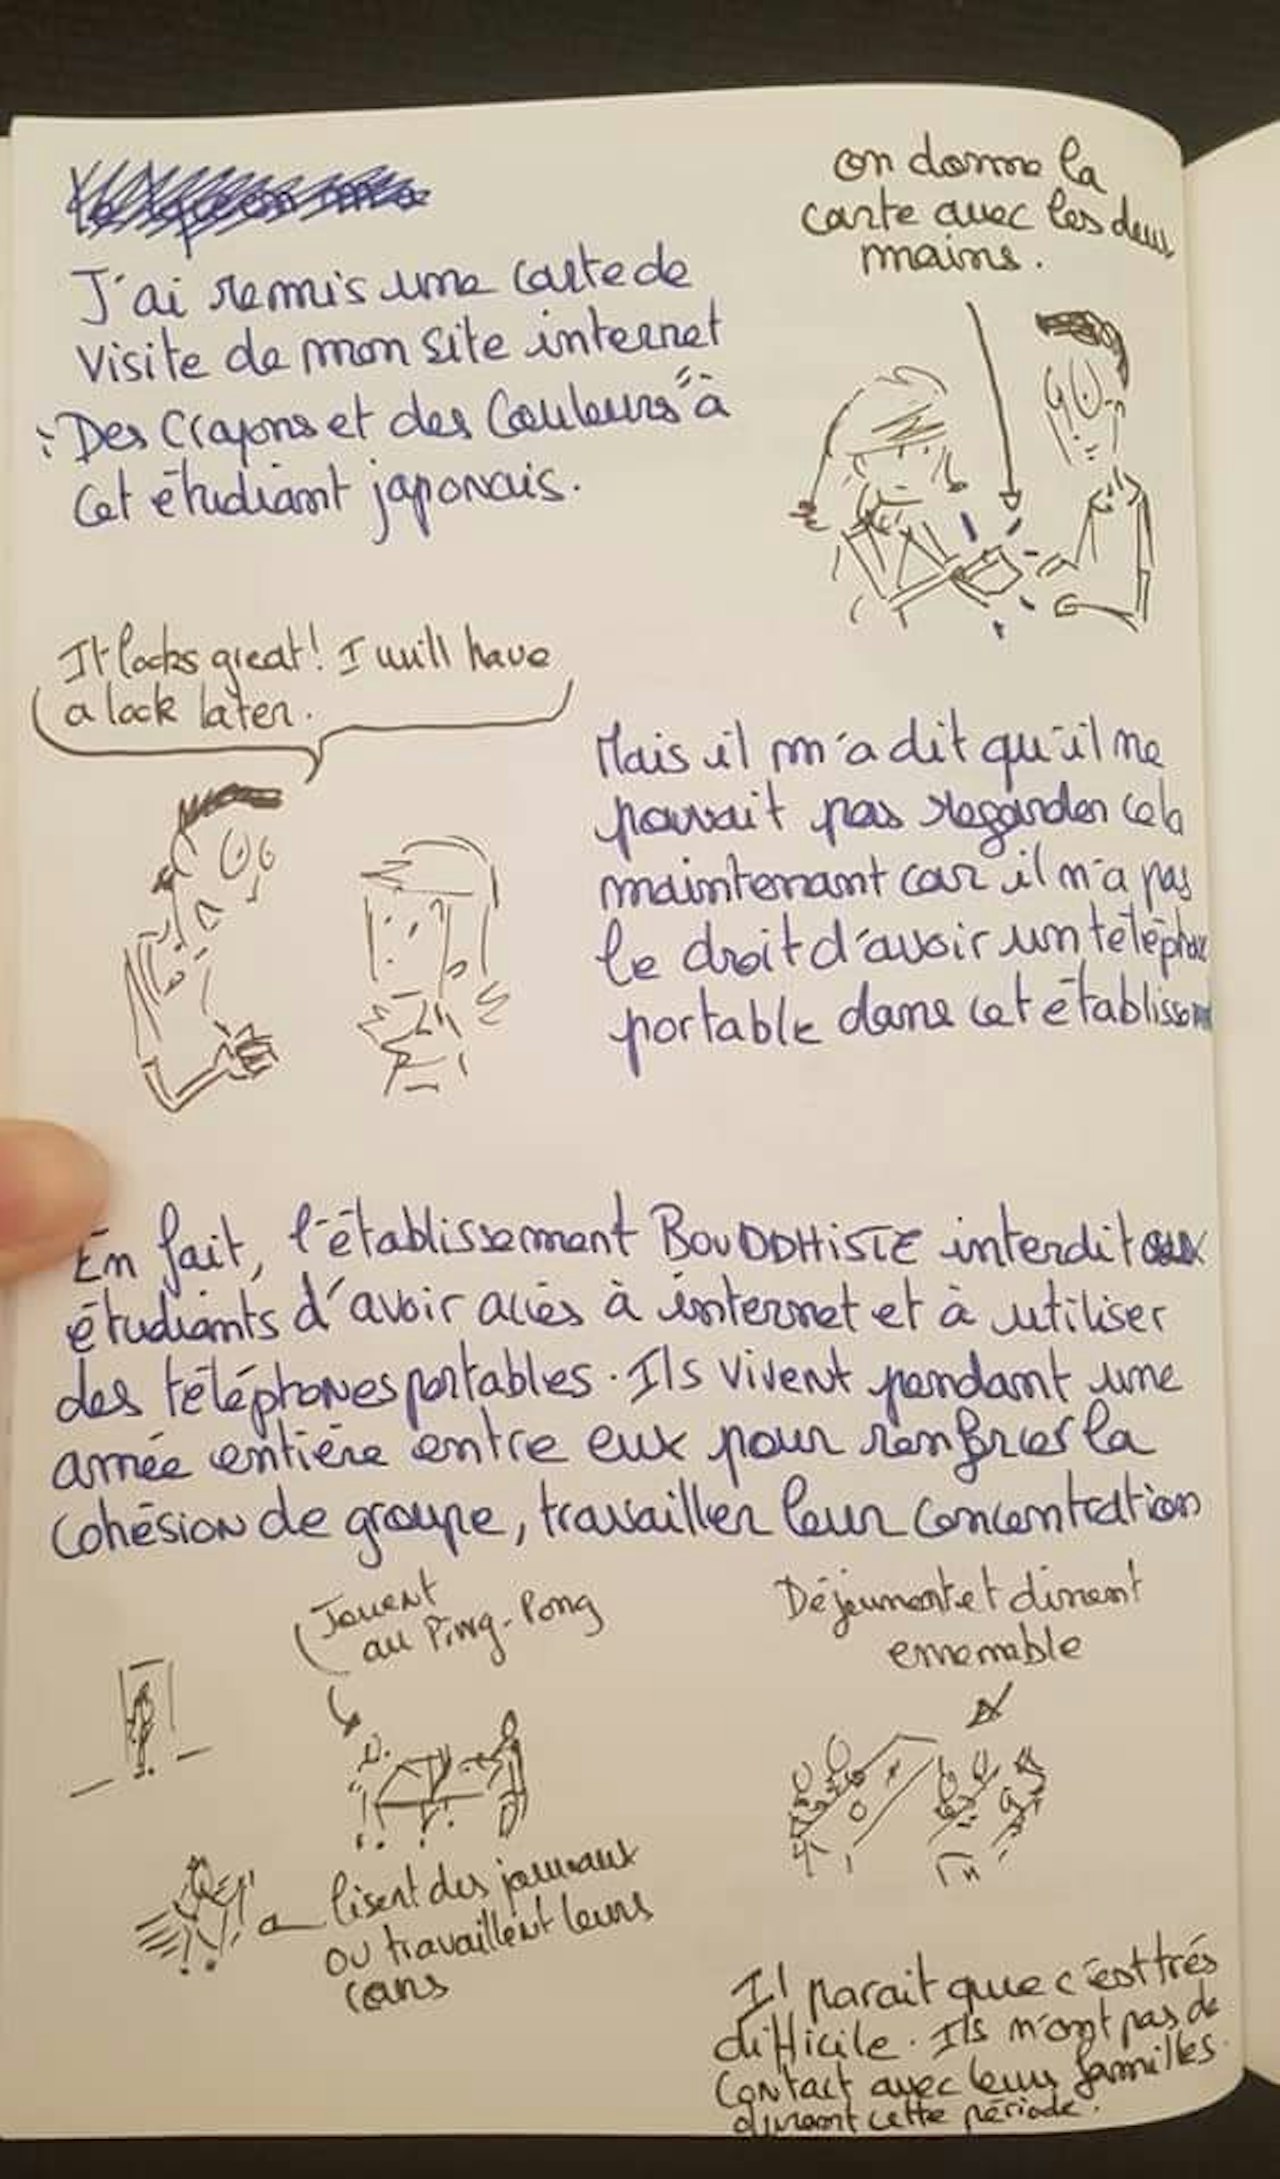 on donne la
carte avec les deux
mains.
J'ai remis une carte de
visite de mon site internet
"Des Crayons et des Couleurs" à
cet étudiant japonais.
It looks great! I will have
a look later.
Mais il m'a dit qu'il ne
pouvait pas regarder cela
maintenant car il n'a pas
le droit d'avoir un téléphone
portable dans cet établissem
En fait, l'établissement BOUDDHISTE interdit aux
étudiants d'avoir accès à internet et à utiliser
des téléphones portables. Ils vivent pendant une
année entière entre eux pour renforcer la
cohésion de groupe, travailler leur concentration
Jouent
au Ping-Pong
Déjeunent et dinent
ensemble
lisent des journaux
ou travaillent leurs
cours
Il parait que c'est très
difficile. Ils n'ont pas de
contact avec leurs familles
durant cette période.